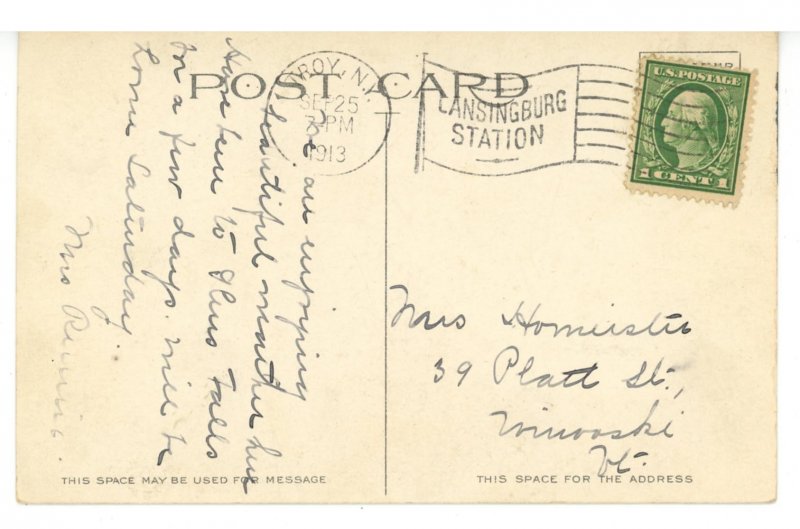 POST CARD
TROY, N.Y.
SEP 25
7-PM
1913
LANSINGBURG
STATION
U.S. POSTAGE
1 CENT 1
We are enjoying
beautiful weather here
Have been to Glens Falls
for a few days. Will be
home Saturday
Mrs
Mrs Homeister
39 Platt St.,
Winooski
Vt.
THIS SPACE MAY BE USED FOR MESSAGE
THIS SPACE FOR THE ADDRESS